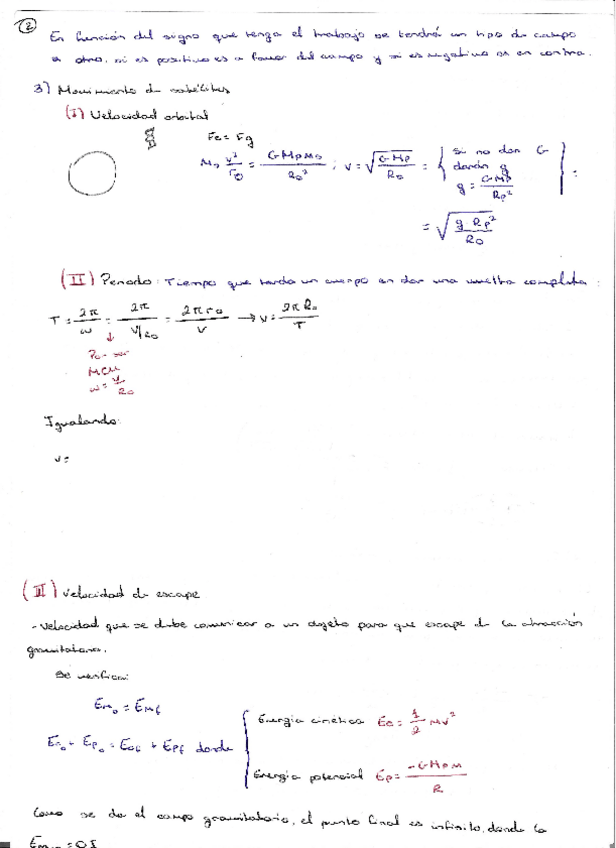 ②
En función del signo que tenga el trabajo se tendrá un tipo de campo
u otro, si es positivo es a favor del campo y si es negativo es en contra.
3) Movimiento de satélites
(I) Velocidad orbital
Fc = Fg
Mo v²/ro = G Mp Mo / Ro² ; v = √(G Mp / Ro) = { si no dan G darán g g = G Mp / Rp² } =
= √(g Rp² / Ro)
(II) Periodo: Tiempo que tarda un cuerpo en dar una vuelta completa:
T = 2π/ω = 2π/(V/Ro) = 2π ro / V → v = 2π Ro / T
↓
Por ser
MCU
ω = v/Ro
Igualando:
v =
(III) Velocidad de escape
- Velocidad que se debe comunicar a un objeto para que escape de la atracción
gravitatoria.
Se verifica:
Em₀ = Emf
Ec₀ + Ep₀ = Ecf + Epf donde { Energía cinética Ec = 1/2 mv²
Energía potencial Ep = -G Mp M / R
Como se da el campo gravitatorio, el punto final es infinito, donde la